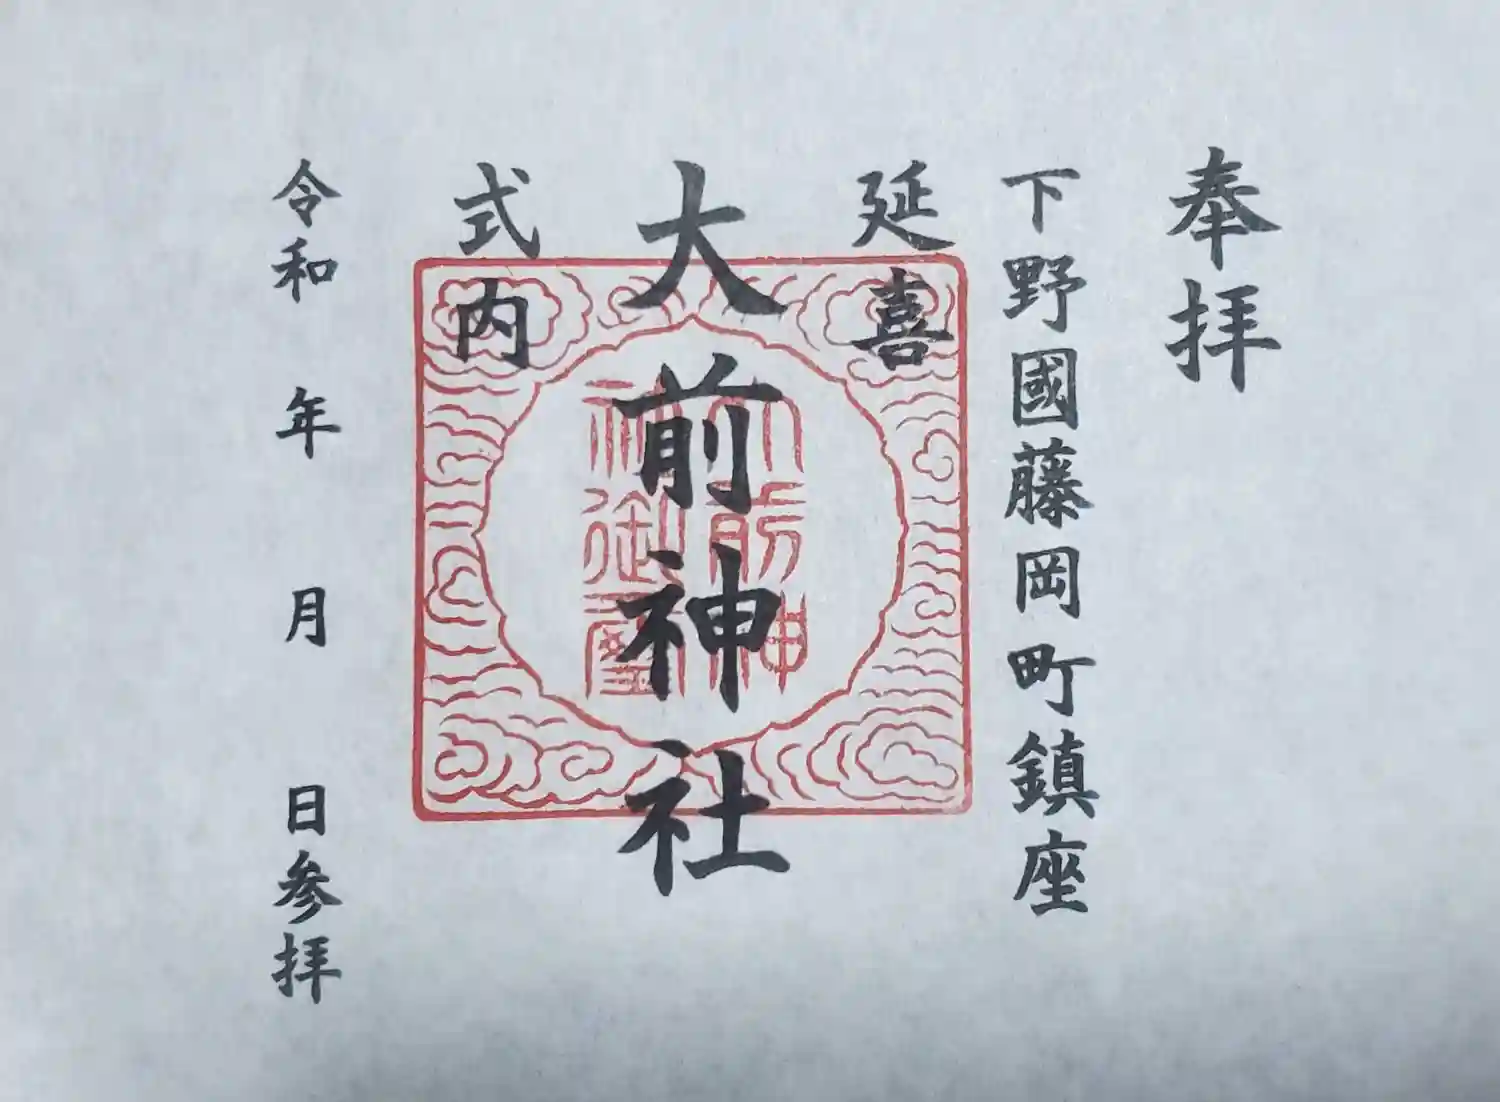 奉拝
下野國藤岡町鎮座
延喜
大前神社
式内
令和 年 月 日参拝
大前神
社御璽